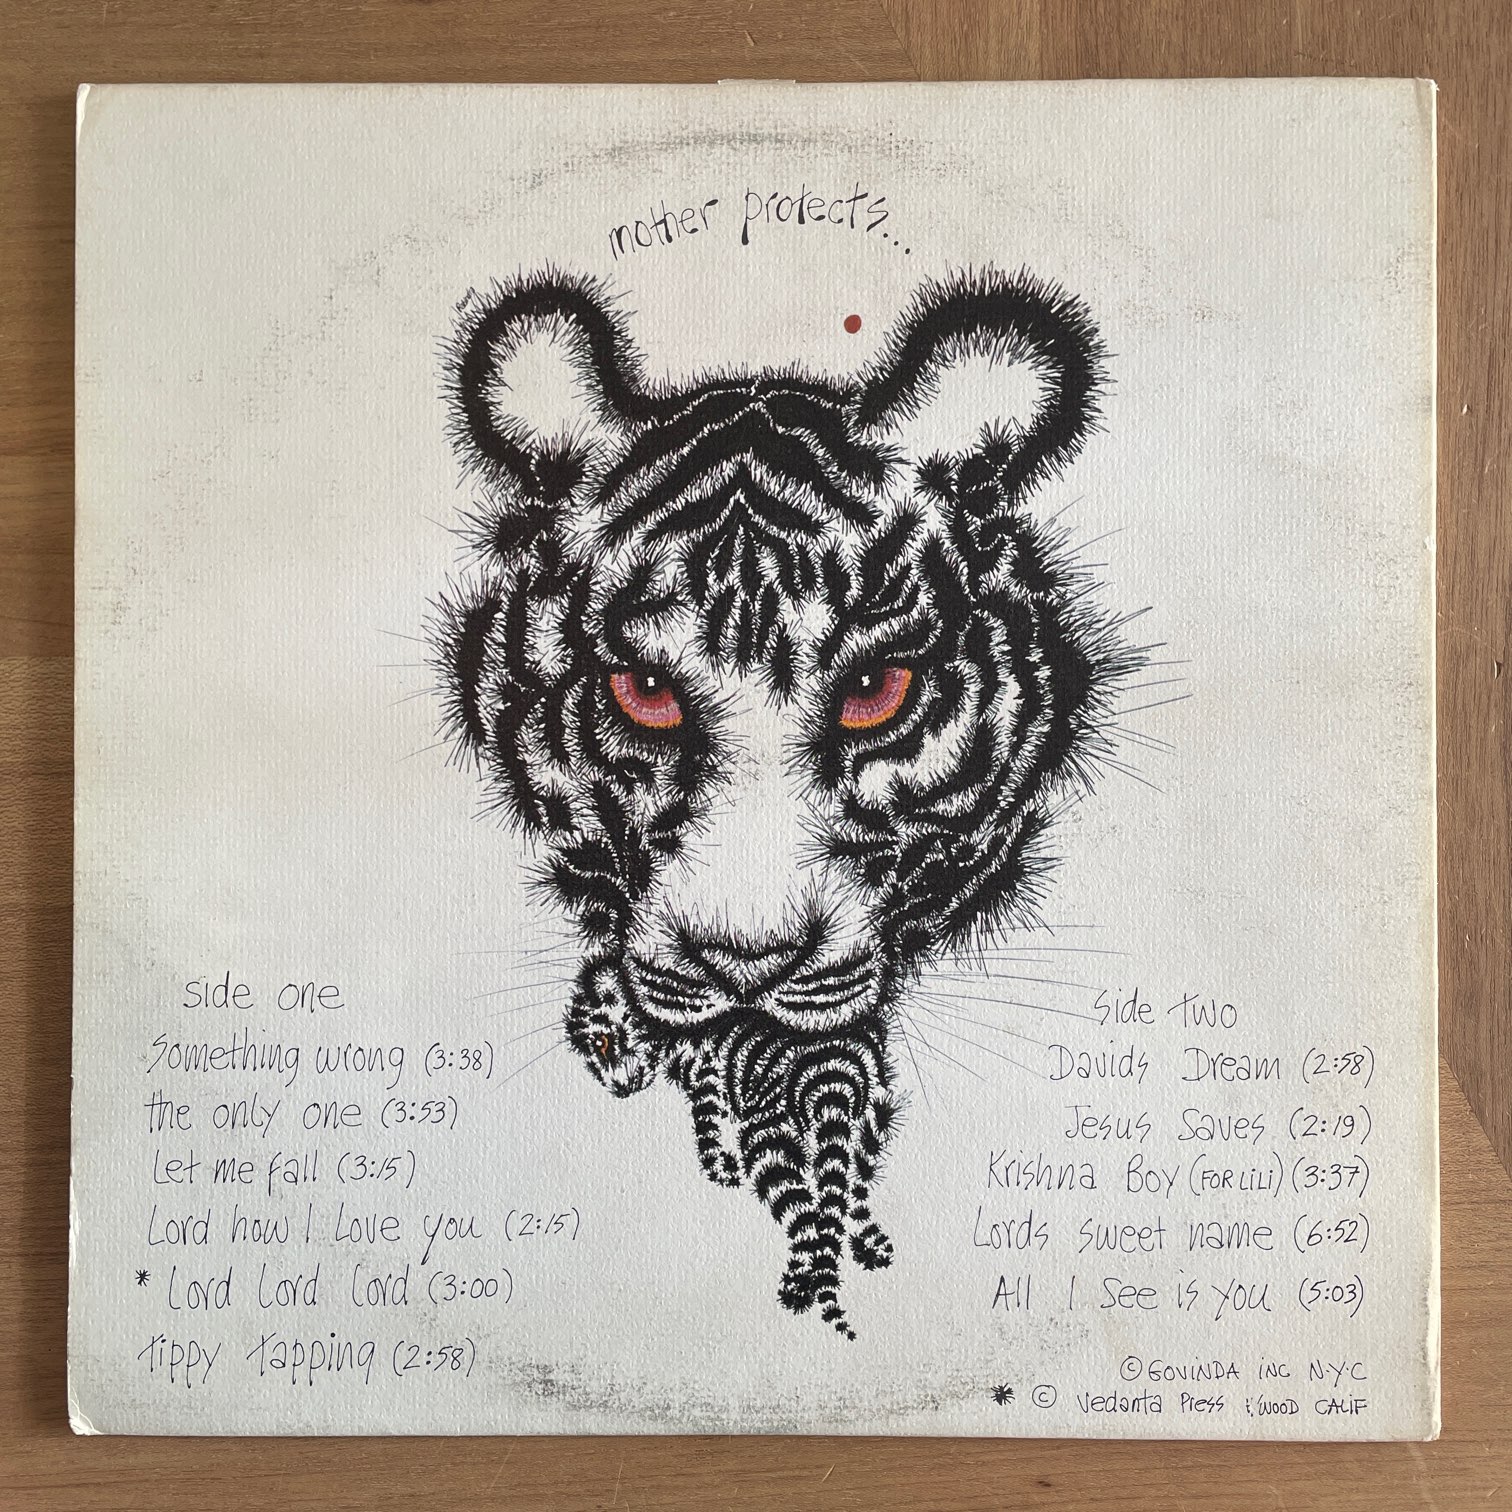 mother protects...
side one
Something wrong (3:38)
the only one (3:53)
Let me fall (3:15)
Lord how I Love you (2:15)
* Lord Lord Lord (3:00)
tippy tapping (2:58)
Side two
Davids Dream (2:58)
Jesus Saves (2:19)
Krishna Boy (FOR LILI) (3:37)
Lords sweet name (6:52)
All I See is you (5:03)
© GOVINDA INC N.Y.C
* © Vedanta Press H'WOOD CALIF